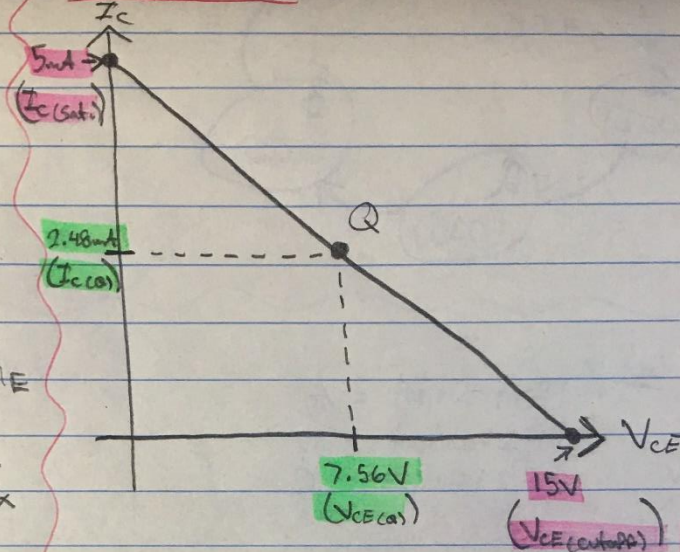 Ic
5mA →
(Ic(sat.))
Q
2.48mA
(Ic(Q))
E
VCE
7.56V
15V
(VCE(Q))
(VCE(cutoff))
x